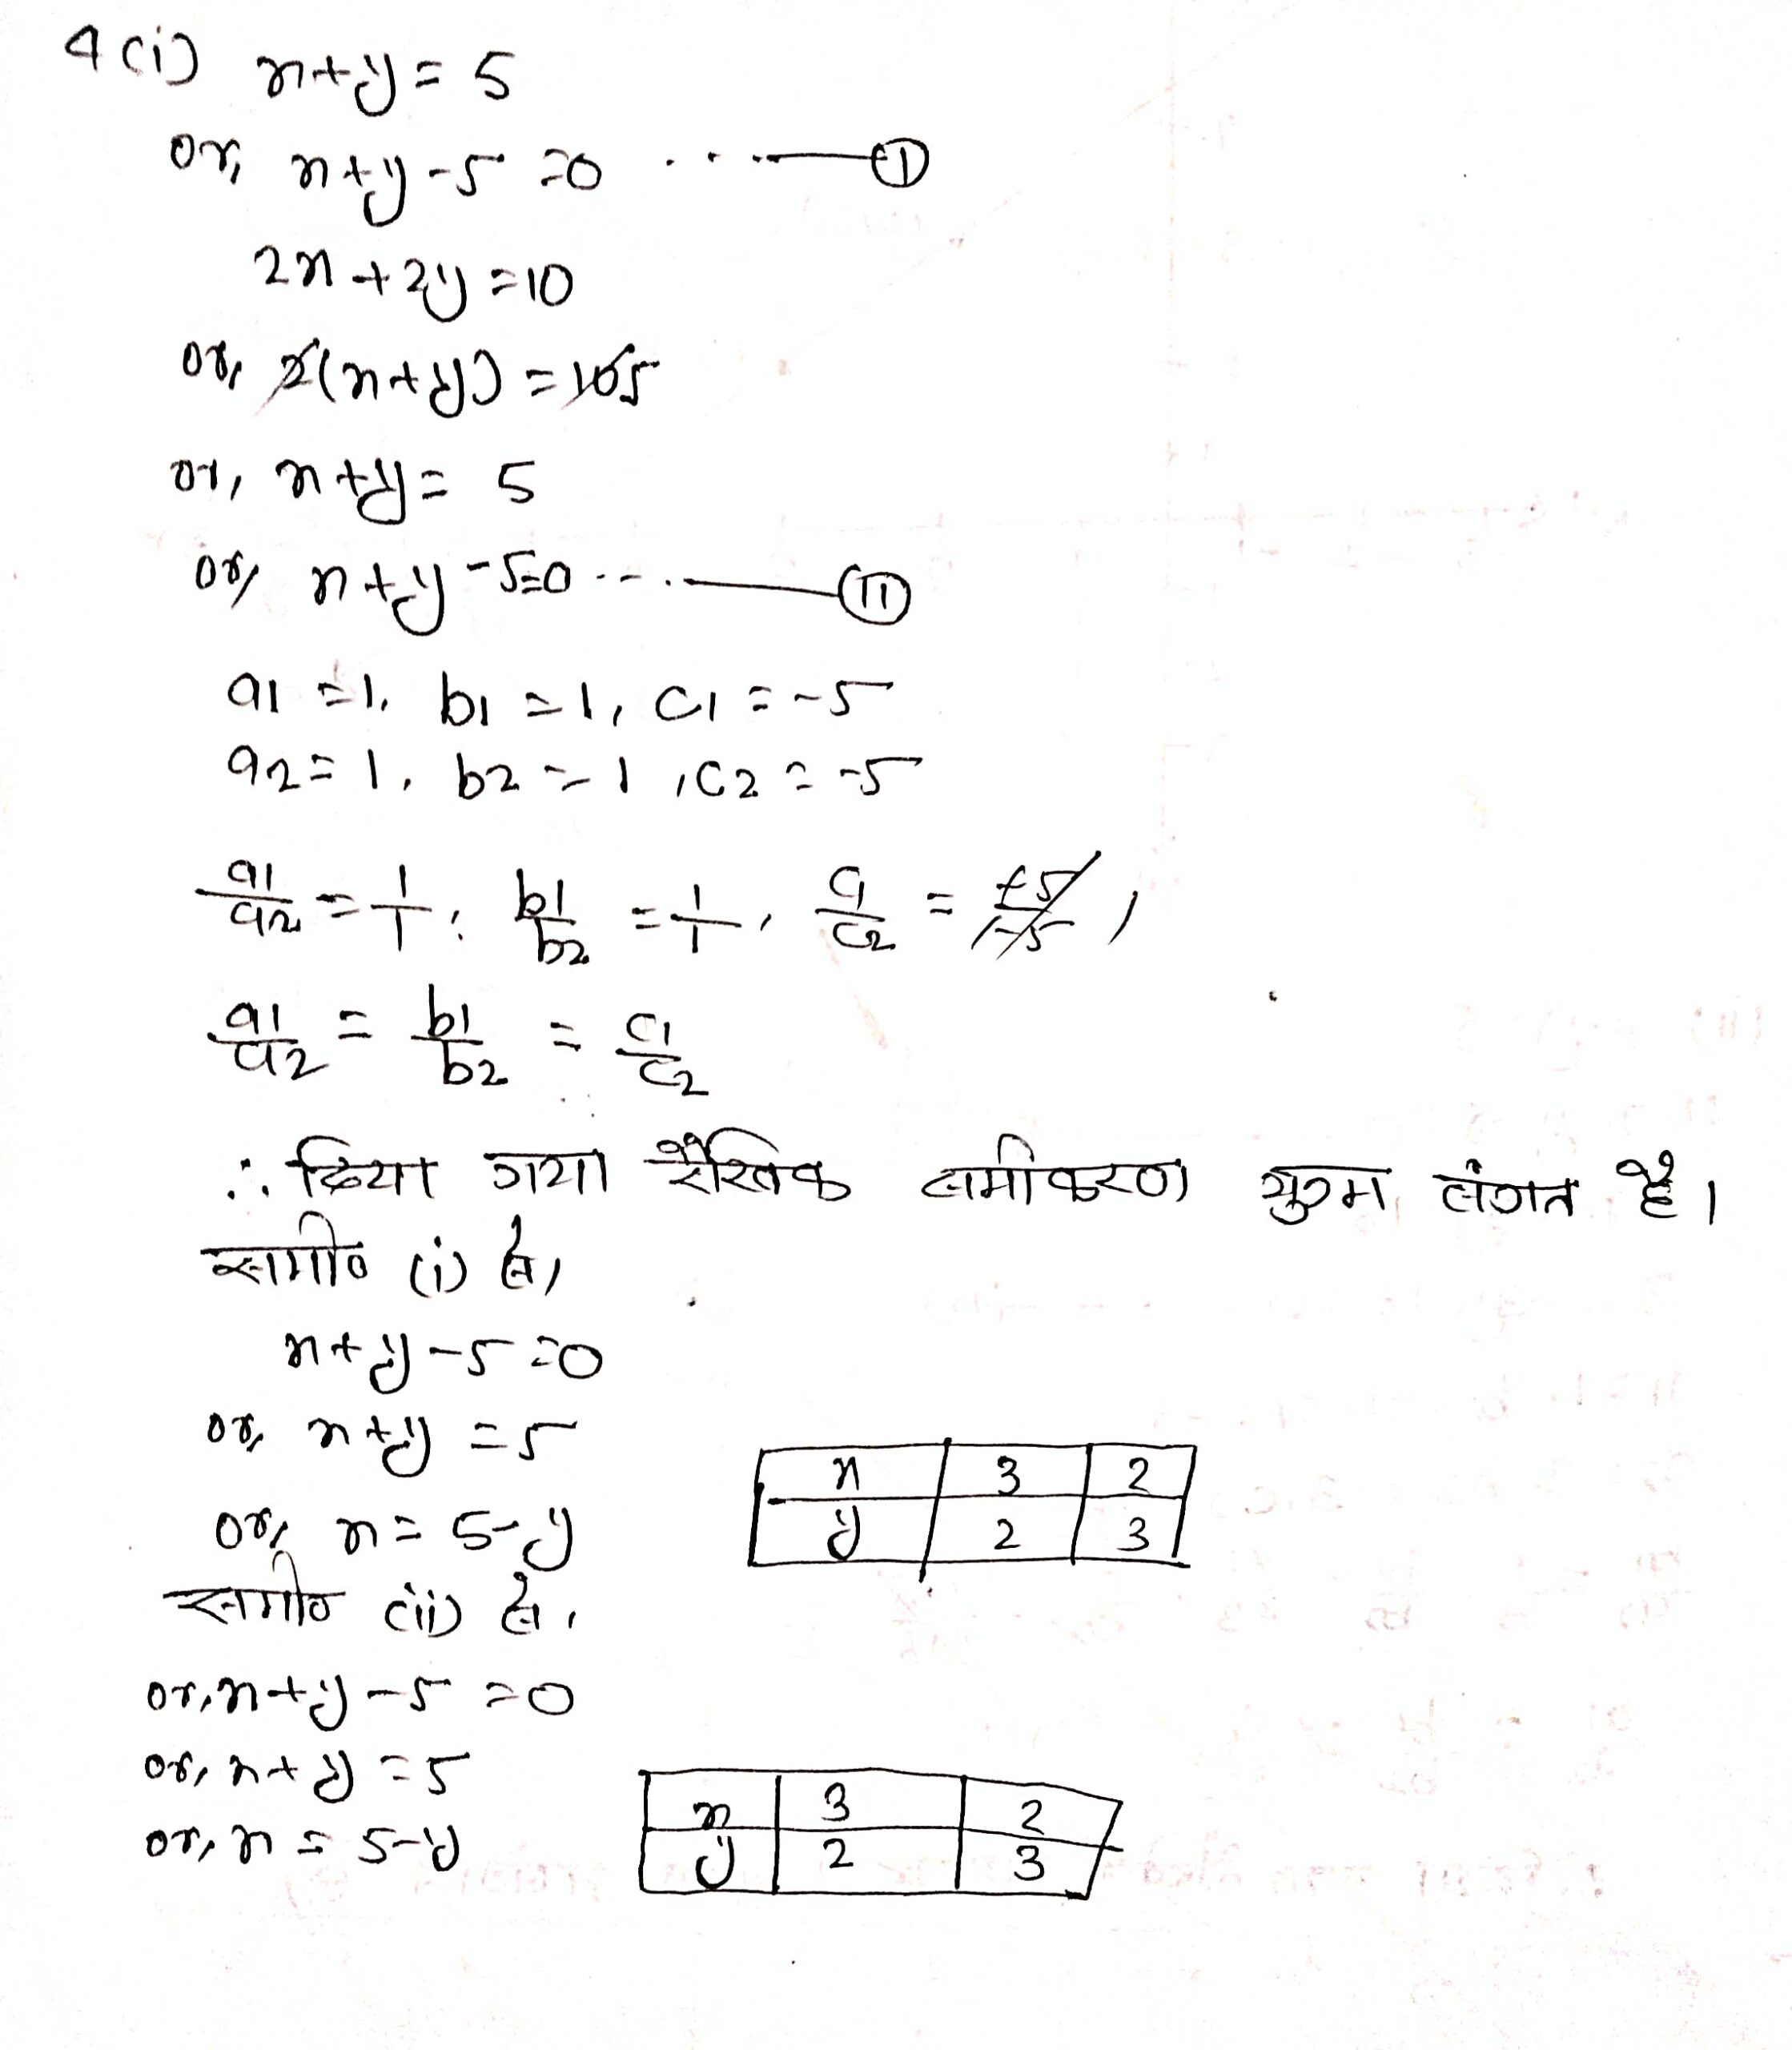 4 (i) x+y = 5
or, x+y-5 =0 ...—(I)
2x+2y =10
or, 2(x+y) = 10 5
or, x+y = 5
or, x+y-5=0 ...—(II)
a1 =1, b1 =1, c1 = -5
a2 = 1, b2 = 1, c2 = -5
a1/a2 = 1/1, b1/b2 = 1/1, c1/c2 = -5/-5,
a1/a2 = b1/b2 = c1/c2
∴ दिया गया रैखिक समीकरण युग्म संगत है।
समी० (i) से,
x+y-5 =0
or, x+y =5
or, x = 5-y
x 3 2
y 2 3
समी० (ii) से,
or, x+y-5 =0
or, x+y =5
or, x = 5-y
x 3 2
y 2 3